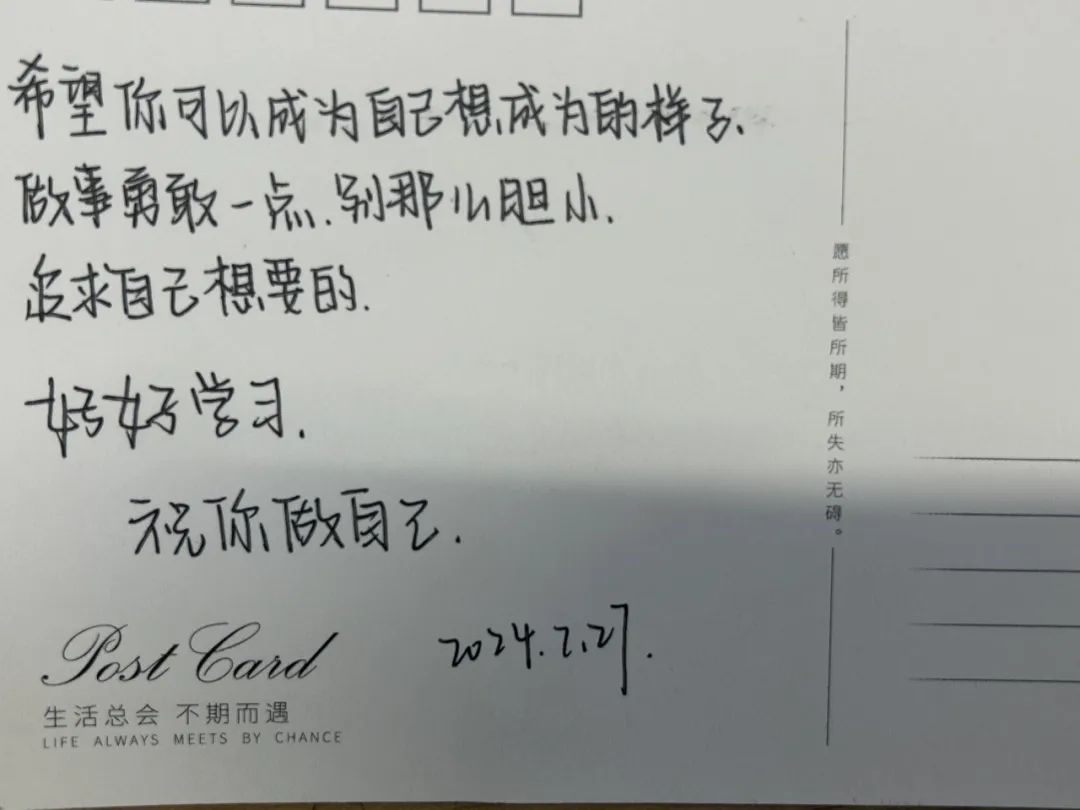 希望你可以成为自己想成为的样子、
做事勇敢一点、别那么胆小.
追求自己想要的.
好好学习.
祝你做自己.
2024.2.27.
Post Card
生活总会 不期而遇
LIFE ALWAYS MEETS BY CHANCE
愿所得皆所期，所失亦无碍。